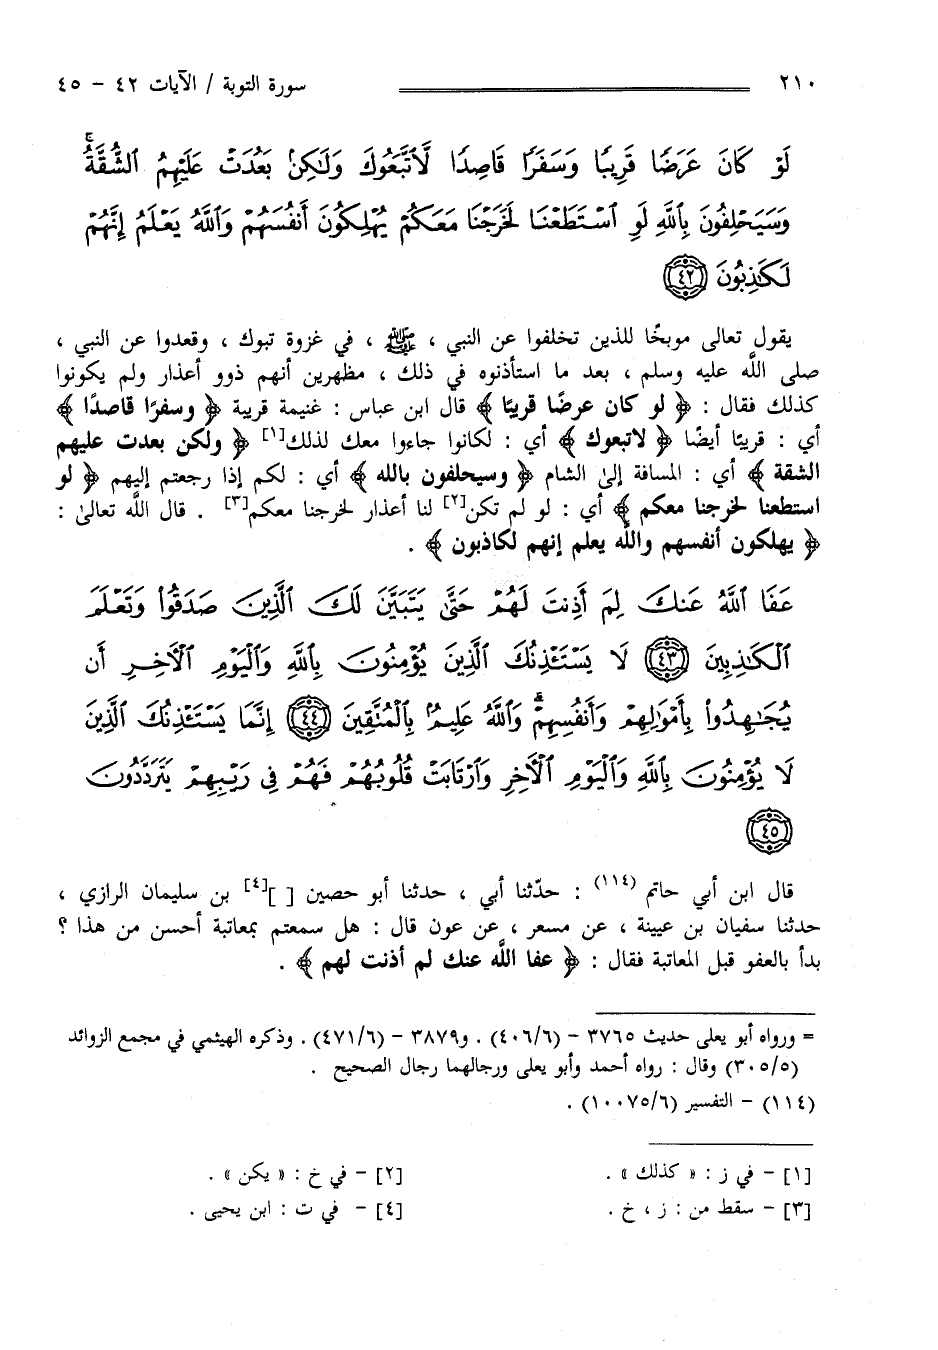 ٢١٠ سورة التوبة / الآيات ٤٢ - ٤٥
لَوْ كَانَ عَرَضًا قَرِيبًا وَسَفَرًا قَاصِدًا لَّاتَّبَعُوكَ وَلَـٰكِنۢ بَعُدَتْ عَلَيْهِمُ الشُّقَّةُ ۚ
وَسَيَحْلِفُونَ بِاللَّهِ لَوِ اسْتَطَعْنَا لَخَرَجْنَا مَعَكُمْ يُهْلِكُونَ أَنفُسَهُمْ وَاللَّهُ يَعْلَمُ إِنَّهُمْ
لَكَـٰذِبُونَ ٤٢
يقول تعالى موبخًا للذين تخلفوا عن النبي ، ﷺ ، في غزوة تبوك ، وقعدوا عن النبي ،
صلى اللَّه عليه وسلم ، بعد ما استأذنوه في ذلك ، مظهرين أنهم ذوو أعذار ولم يكونوا
كذلك فقال : ﴿ لو كان عرضًا قريبًا ﴾ قال ابن عباس : غنيمة قريبة ﴿ وسفرًا قاصدًا ﴾
أي : قريبًا أيضًا ﴿ لاتبعوك ﴾ أي : لكانوا جاءوا معك لذلك[١] ﴿ ولكن بعدت عليهم
الشقة ﴾ أي : المسافة إلى الشام ﴿ وسيحلفون بالله ﴾ أي : لكم إذا رجعتم إليهم ﴿ لو
استطعنا لخرجنا معكم ﴾ أي : لو لم تكن[٢] لنا أعذار لخرجنا معكم[٣] . قال اللَّه تعالى :
﴿ يهلكون أنفسهم واللَّه يعلم إنهم لكاذبون ﴾ .
عَفَا اللَّهُ عَنكَ لِمَ أَذِنتَ لَهُمْ حَتَّىٰ يَتَبَيَّنَ لَكَ الَّذِينَ صَدَقُوا۟ وَتَعْلَمَ
الْكَـٰذِبِينَ ٤٣ لَا يَسْتَـْٔذِنُكَ الَّذِينَ يُؤْمِنُونَ بِاللَّهِ وَالْيَوْمِ الْـَٔاخِرِ أَن
يُجَـٰهِدُوا۟ بِأَمْوَٰلِهِمْ وَأَنفُسِهِمْ ۗ وَاللَّهُ عَلِيمٌۢ بِالْمُتَّقِينَ ٤٤ إِنَّمَا يَسْتَـْٔذِنُكَ الَّذِينَ
لَا يُؤْمِنُونَ بِاللَّهِ وَالْيَوْمِ الْـَٔاخِرِ وَارْتَابَتْ قُلُوبُهُمْ فَهُمْ فِى رَيْبِهِمْ يَتَرَدَّدُونَ
٤٥
قال ابن أبي حاتم (١١٤) : حدّثنا أبي ، حدثنا أبو حصين [ ][٤] بن سليمان الرازي ،
حدثنا سفيان بن عيينة ، عن مسعر ، عن عون قال : هل سمعتم بمعاتبة أحسن من هذا ؟
بدأ بالعفو قبل المعاتبة فقال : ﴿ عفا اللَّه عنك لم أذنت لهم ﴾ .
= ورواه أبو يعلى حديث ٣٧٦٥ - (٤٠٦/٦) . و٣٨٧٩ - (٤٧١/٦) . وذكره الهيثمي في مجمع الزوائد
(٣٠٥/٥) وقال : رواه أحمد وأبو يعلى ورجالهما رجال الصحيح .
(١١٤) - التفسير (١٠٠٧٥/٦) .
[١] - في ز : « كذلك » . [٢] - في خ : « يكن » .
[٣] - سقط من : ز ، خ . [٤] - في ت : ابن يحيى .